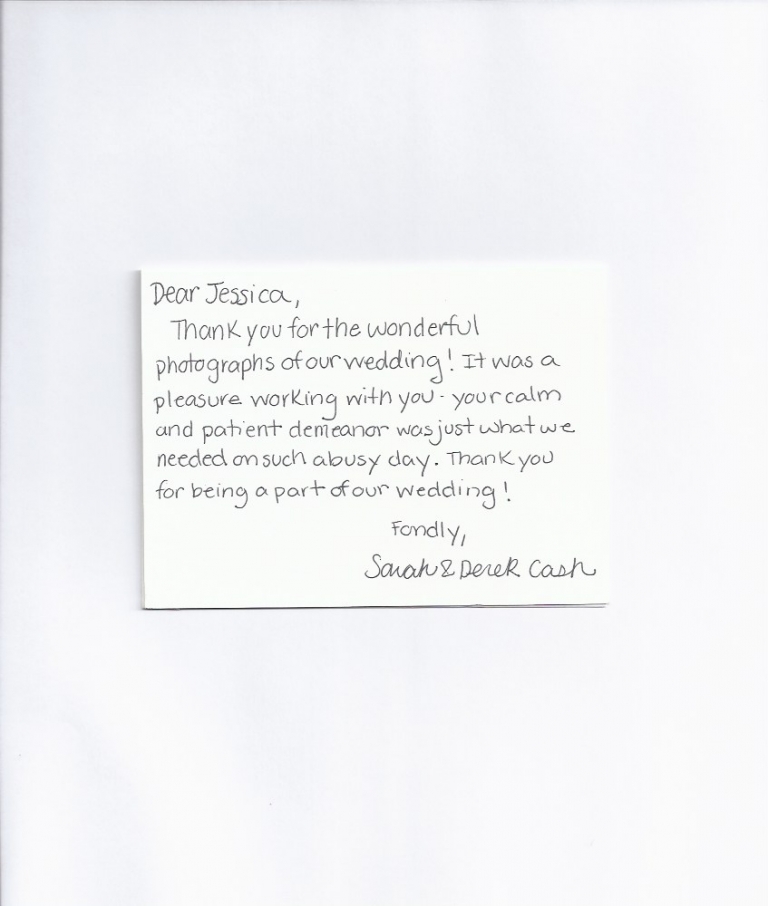 Dear Jessica,
Thank you for the wonderful
photographs of our wedding! It was a
pleasure working with you - your calm
and patient demeanor was just what we
needed on such a busy day. Thank you
for being a part of our wedding!
Fondly,
Sarah & Derek Cash